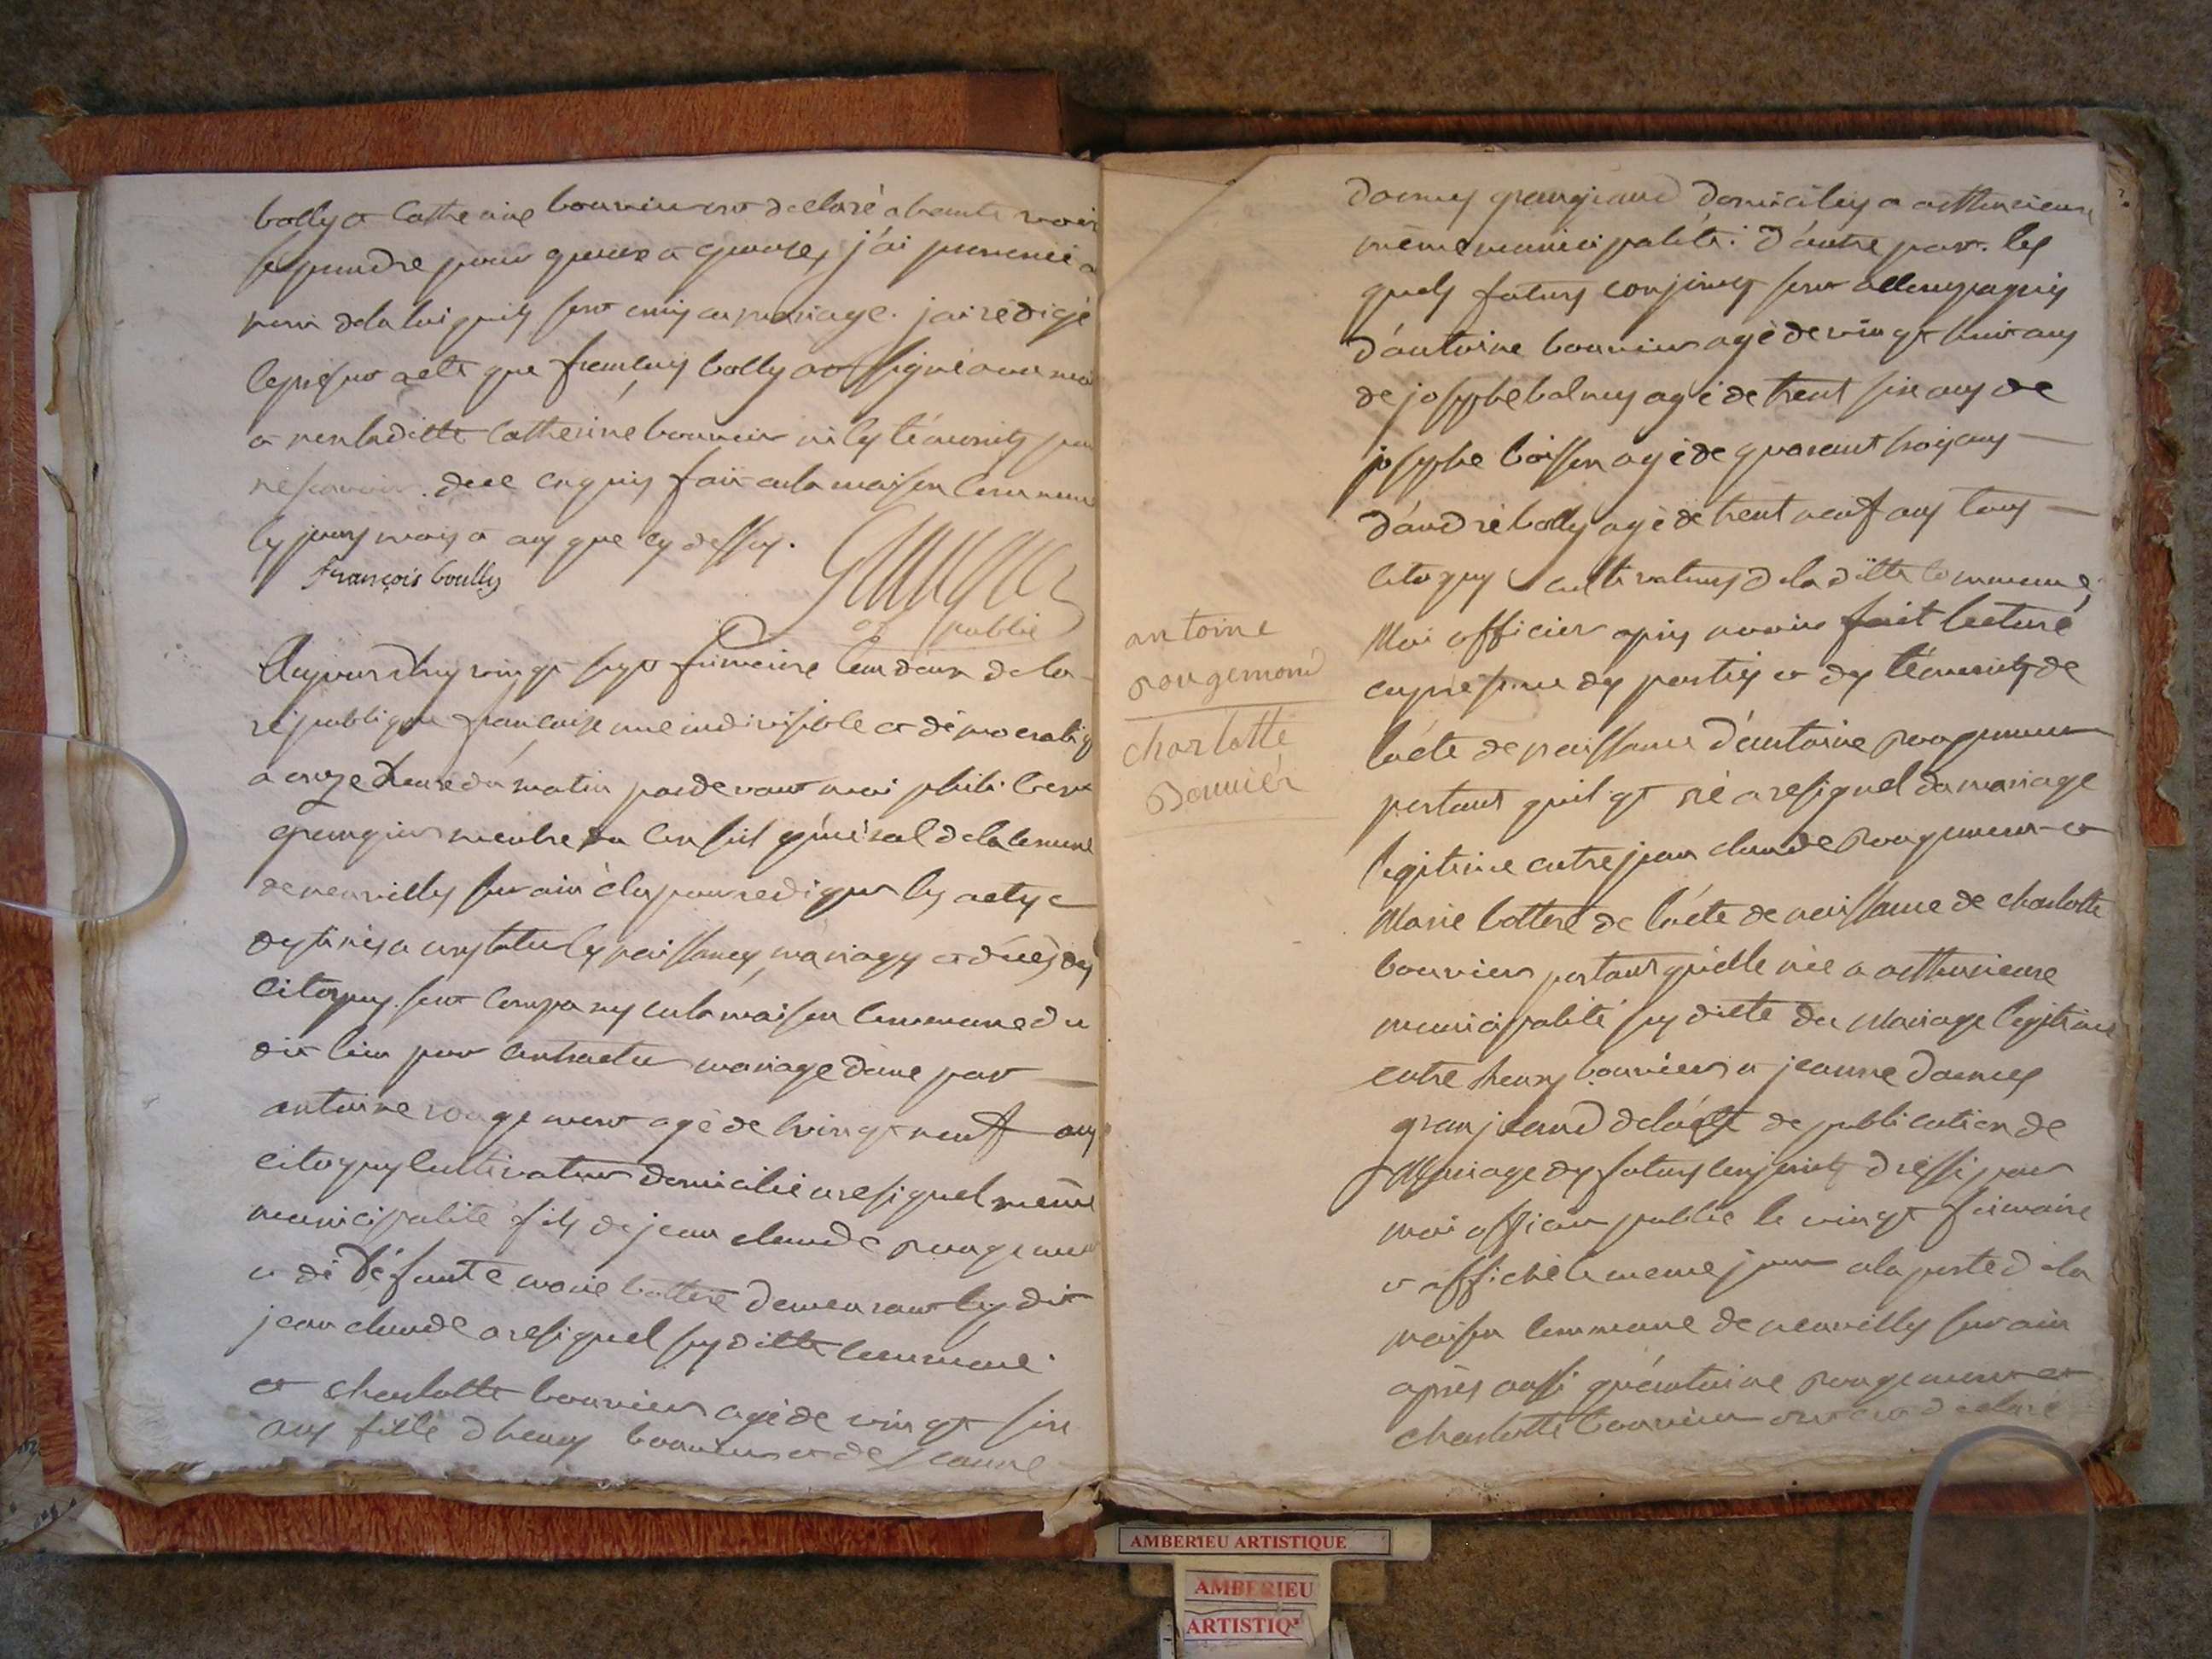 bolly et Catherine bouvier ont declaré a haute voix
se prendre pour epoux et epouse, j'ai prononcé au
nom de la loi quils sont unis en mariage. j'ai rédigé
le présent acte que francois bolly a signé avec moi
et non laditte Catherine bouvier ni les témoints pour
ne scavoir. de ce enquis fait en la maison Commune
les jours mois et ans que cy dessus.
François boully
of public
Aujourdhuy vingt sept frimaire l'an deux de la
république francaise une indivisible et démocratiq
a onze heure du matin pardevant moi philibert
grangier membre du Conseil général de la Comune
de neuville sur ain élu pour rediger les actes
destinés a constater les naissances, mariages et décès des
Citoyens. sont Comparus en la maison Commune du
dit lieu pour Contracter mariage d'une part
antoine rougemont agé de vingt neuf ans
citoyens Cultivateur domicilié a resignel même
municipalité fils de jean claude rougemont
et de défunte marie bottere demeurant ledit
jean claude a resignel susditte Commune.
et charlotte bouvier agé de vingt six
ans fille d'henry bouvier et de jeanne
antoine
rougemond
charlotte
Bouviér
dames granjeand domiciliés a
même municipalité. d'autre part. les
quels futurs conjoints sont accompagnés
d'antoine bouvier agé de vingt huit ans
de josephe balmes agé de trent six ans de
josephe boisson agé de quarant trois ans
d'andré bolly agé de trent neuf ans tous
citoyens cultivateurs de la ditte Commune,
Moi officier après avoir fait lecture
en presence des parties et des témoints de
l'acte de naissance d'antoine rougemont
portant quil est né a resignel du mariage
legitime entre jean claude rougemont et
Marie bottere de l'acte de naissance de charlotte
bouvier portant quelle née a
municipalité susditte du Mariage legitime
entre henry bouvier et jeanne dames
granjeand de l'acte de publication de
Mariage des futurs conjoints dressé par
moi officier public le vingt frimaire
et affiché le meme jour a la porte de la
maison Commune de neuville sur ain
après aussi qu'antoine rougemont et
charlotte bouvier ont eut declaré
AMBERIEU ARTISTIQUE
AMBERIEU
ARTISTIQ